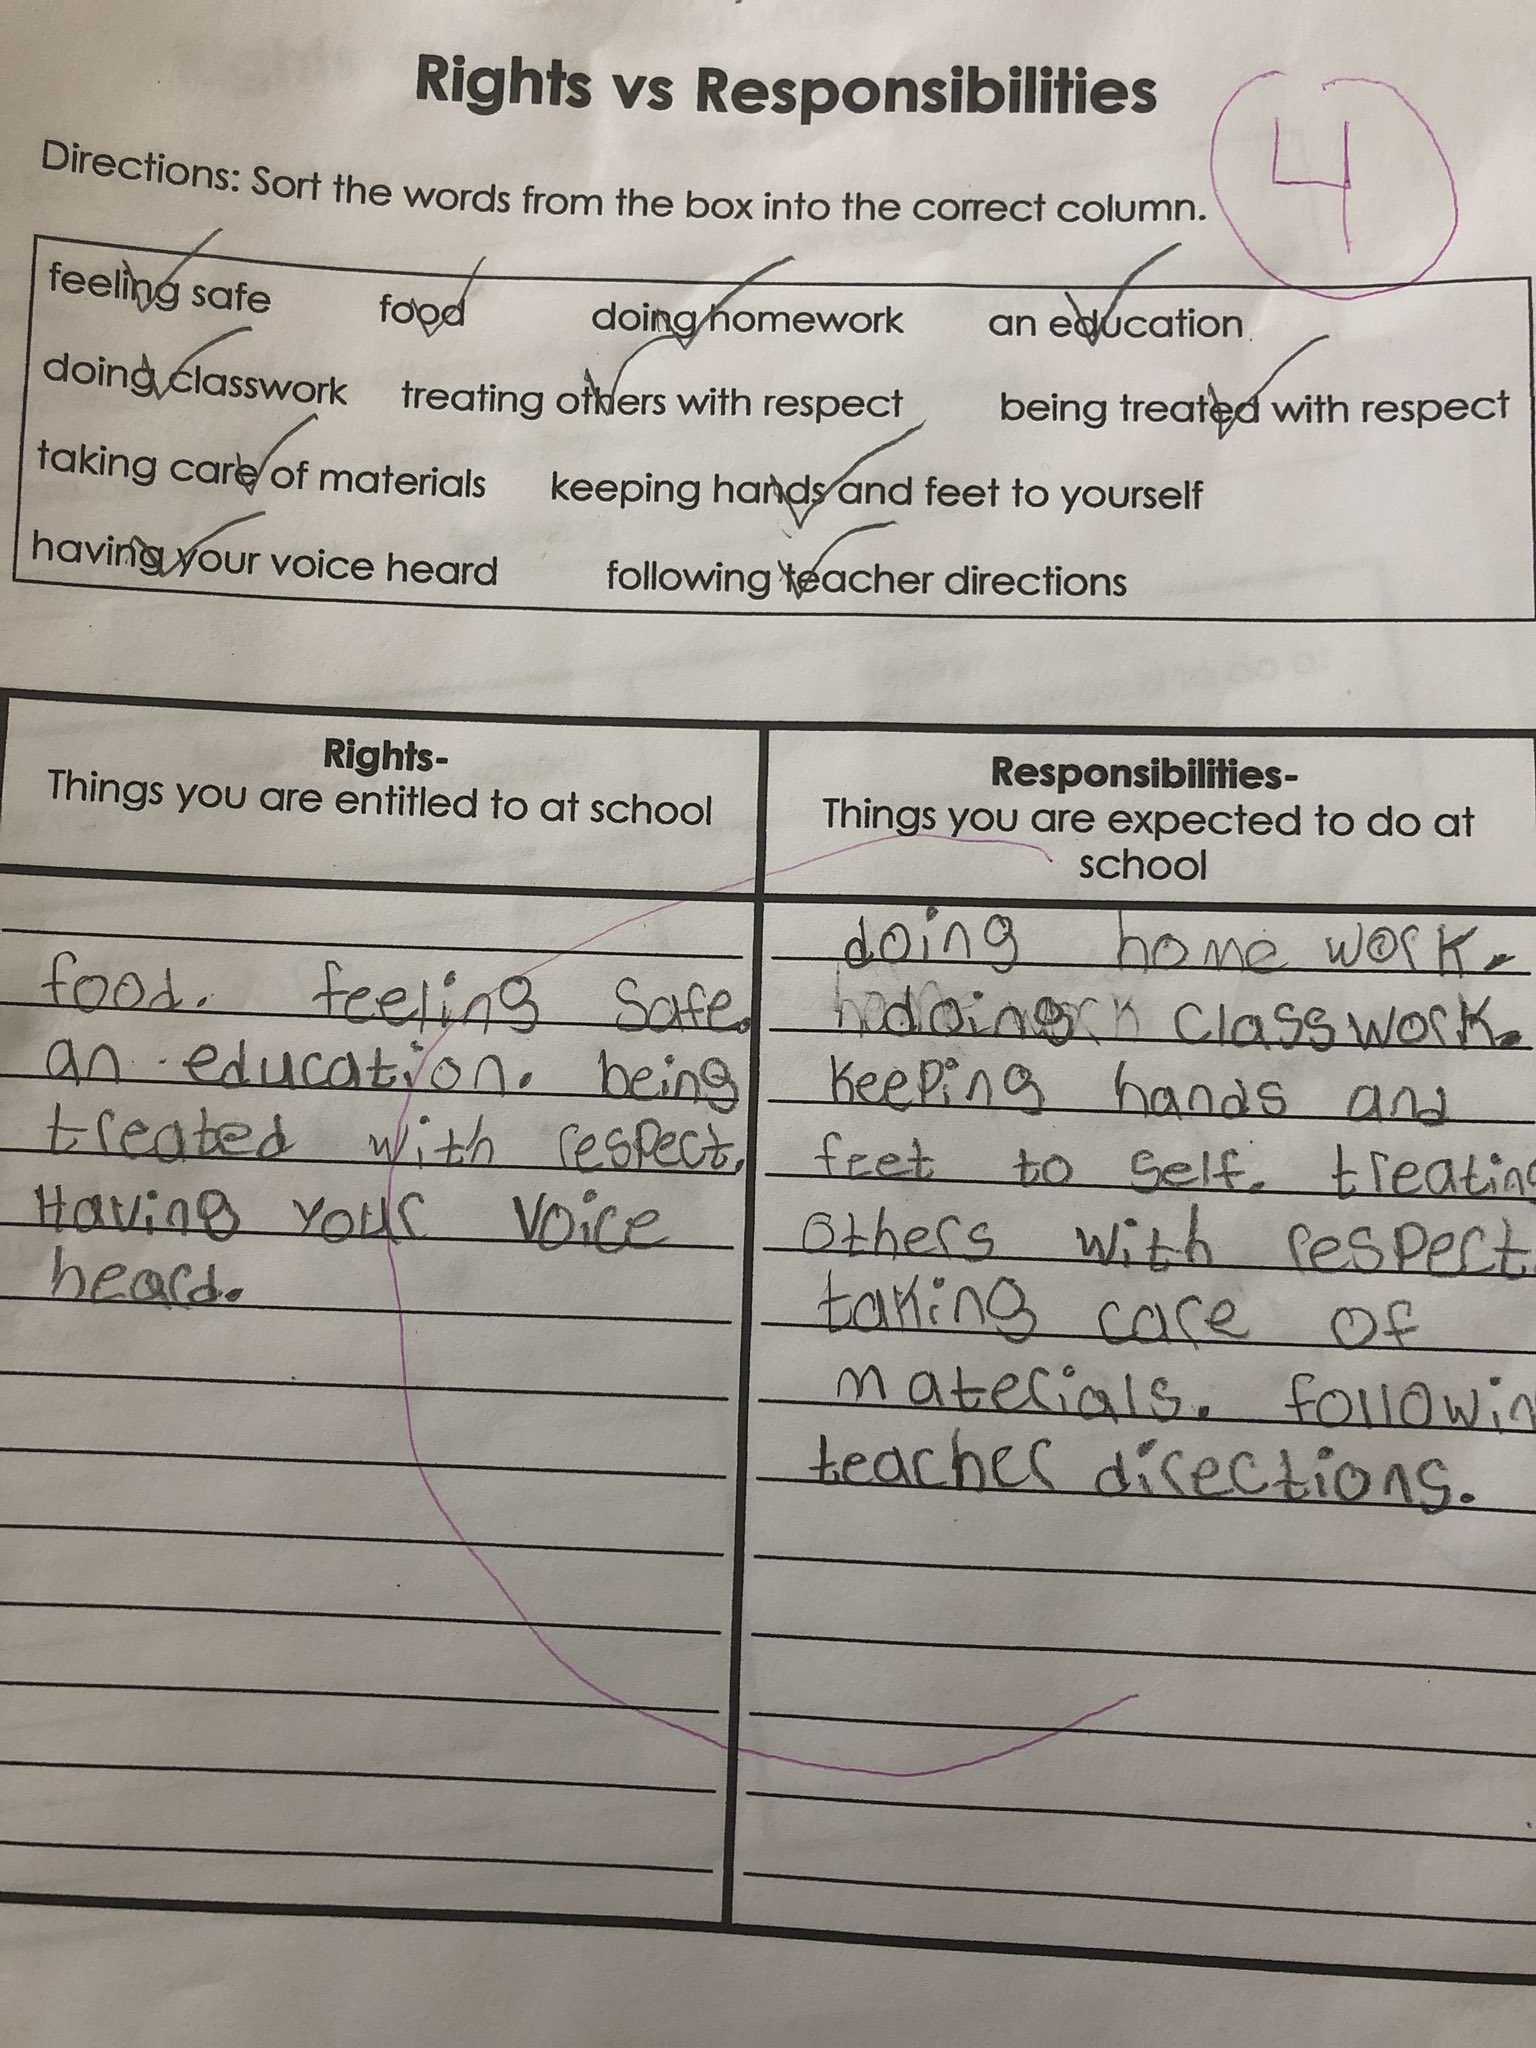 Rights vs Responsibilities
4
Directions: Sort the words from the box into the correct column.
feeling safe food doing homework an education
doing classwork treating others with respect being treated with respect
taking care of materials keeping hands and feet to yourself
having your voice heard following teacher directions
Rights-
Things you are entitled to at school
food. feeling safe.
an education. being
treated with respect.
Having your voice
heard.
Responsibilities-
Things you are expected to do at
school
doing home work.
doing classwork.
keeping hands and
feet to self. treating
others with respect.
taking care of
materials. followin
teacher directions.